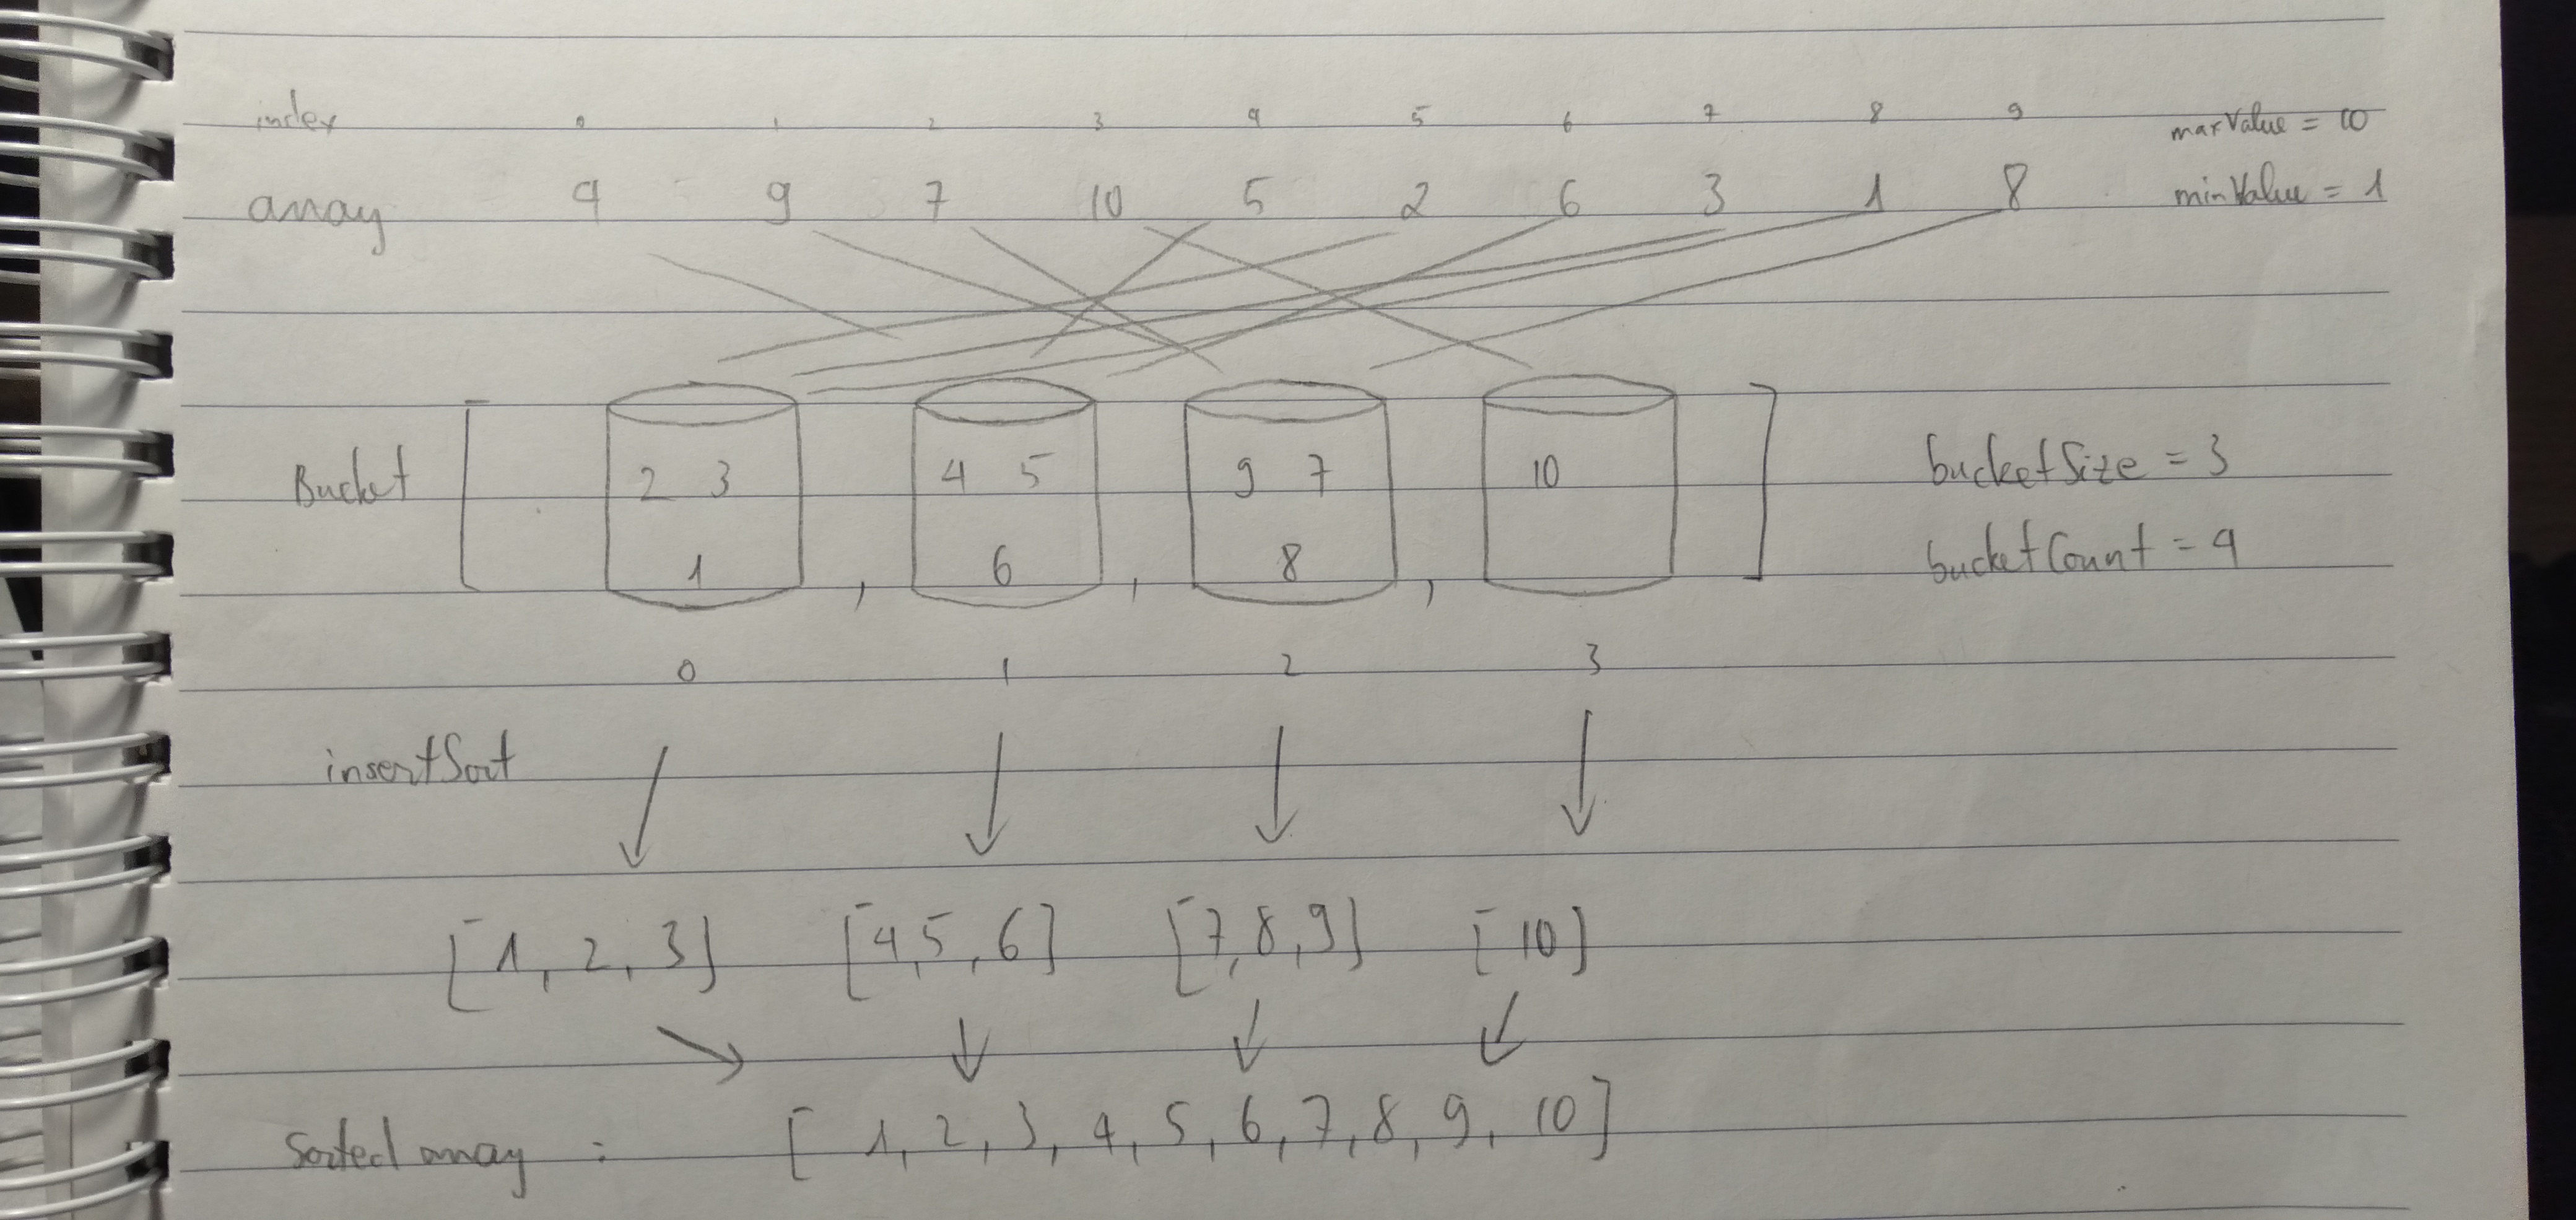 index 0 1 2 3 4 5 6 7 8 9 maxValue = 10
array 4 9 7 10 5 2 6 3 1 8 minValue = 1
Bucket [ 2 3 4 5 9 7 10 ] bucketSize = 3
1 , 6 , 8 , bucketCount = 4
0 1 2 3
insertSort
[ 1, 2, 3 ] [ 4, 5, 6 ] [ 7, 8, 9 ] [ 10 ]
Sorted array : [ 1, 2, 3, 4, 5, 6, 7, 8, 9, 10 ]